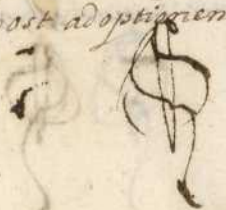 post adoptionem